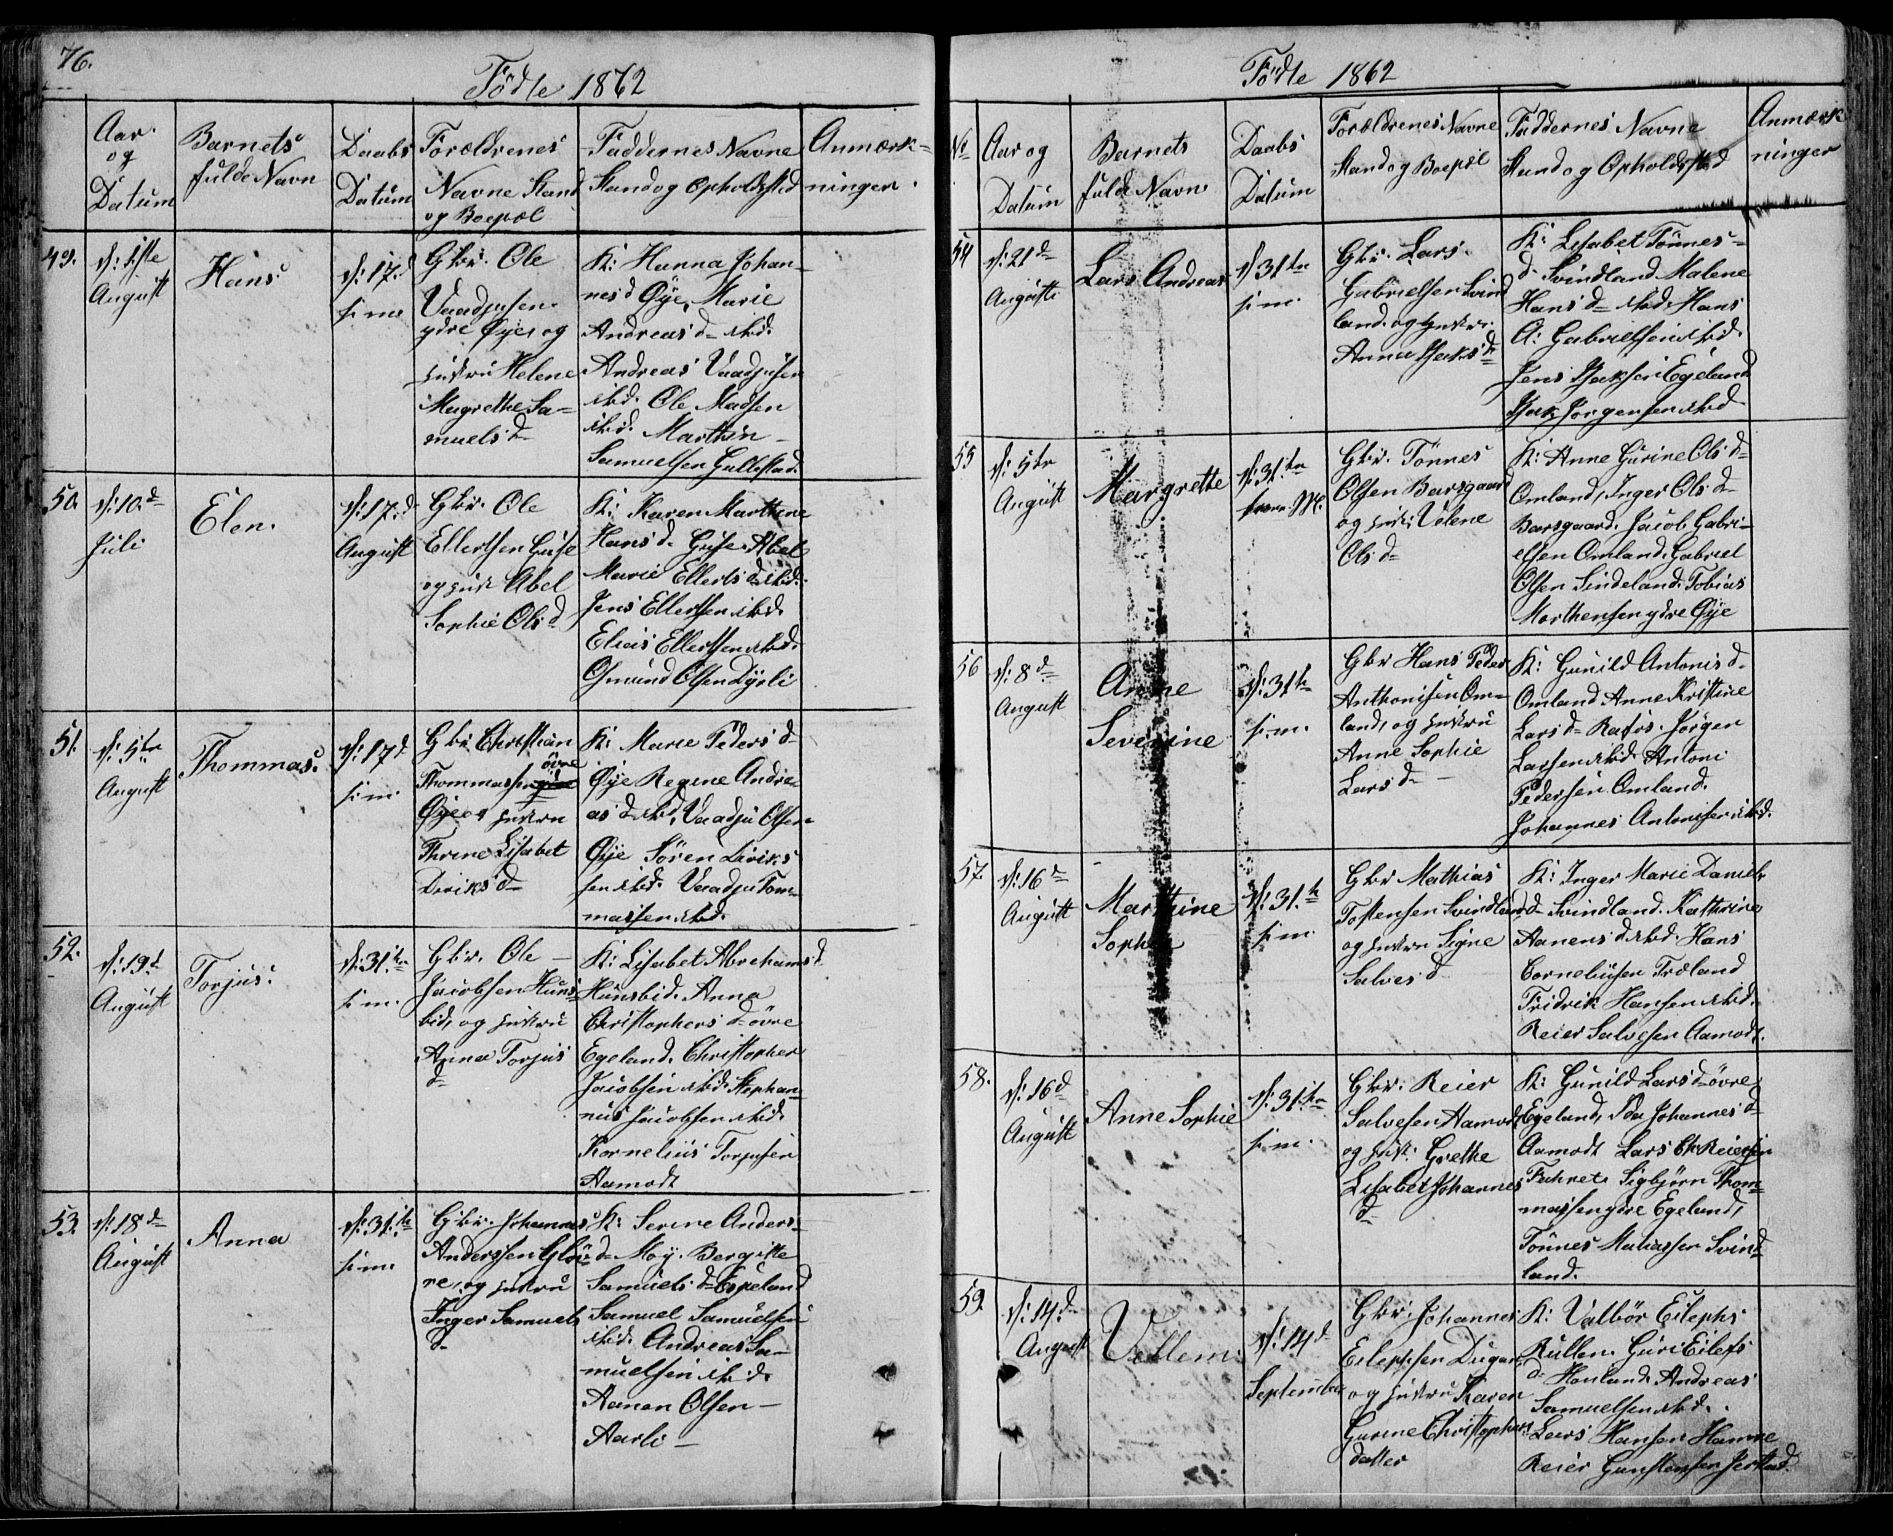 76.
Födte 1862
Aar
og
Datum
Barnets
fulde Navn
Daabs
Datum
Forældrenes
Navne Stand
og Boepæl
Faddernes Navne
Stand og Opholdssted
Anmærk-
ninger.
49.
August
Hans
d: 17. d
s: m.
Gbr. Ole
ydre Øye, og
Hustru Helene
Magrethe Sa-
muels d.
K: Hanna Johan-
nes d Øye, Marie
Andreas d- ibid.
Andreas
ibid. Ole Madsen
ibid. Marthin
Samuelsen Gullestad.
50.
d: 10. d
Juli
Elen.
d: 17. d
August
Gbr. Ole
Ellertsen Guse
og Hust Abel
Sophie Ols d
K: Karen Marthine
Hans d. Guse. Abel
Marie Ellerts d ibid.
Jens Ellertsen ibid.
Elias Ellertsen ibid.
Osmund Olsen Dyrli
51.
d: 5te
August
Thommas.
d: 17 d
s: m.
Gbr. Christian
Thommassen øvre
Øye og Hustru
Thrine Lisabet
Diriks d
K: Marie Peders d
Øye Regine Andre-
as d ibid, Vaadju Olsen
Øye Sören Diriks
sen ibid. Vaadju Tom-
massen ibid.
52.
d: 19. d
August
Torjus.
d: 31. te
s: m.
Gbr. Ole
Jacobsen Huns-
bid, og Hustru
Anna Torjus
d
K: Lisabet Abrahams d
Hunsbid. Anna
Christophers d övre
Egeland. Christopher
Jacobsen ibid. Stephan-
nus Jacobsen ibid.
Kornelius Torjusen
Aamodt
53.
d: 18 d
August
Anna
d: 31. te
s: m.
Gbr. Johannes
Anderssen Glöv-
re, og Hustru
Inger Samuels
d
K: Serine Anders-
d Moy. Bergitte
Samuels d Espeland
Samuel Samuelsen
ibid. Andreas Sa-
muelsen ibid.
Aanen Olsen
Aarli
Födte 1862
No
Aar og
Datum
Barnets
fulde Navn
Daabs
Datum
Forældrenes Navne
Stand og Boepæl
Faddernes Navne
Stand og Opholdssted
Anmærk-
ninger
54
d: 21 d
August
Lars Andreas
d 31te
s: m.
Gbr. Lars
Gabrielsen Svind
land. og Hustru
Anna Isaks d
K: Lisabet Tönnes-
d. Svindland. Malene
Hans d ibid. Hans
A: Gabrielsen ibid.
Jens Isaksen Egeland
Isak Jörgensen ibid
55
d: 5te
August
Margrethe
d: 31. te
Gbr. Tönnes
Olsen Barsgaard
og Hust: Velene
Ols d
K: Anne Gurine Ols d
Omland, Inger Ols d
Barsgaard. Jacob Gabri-
elsen Omland. Gabriel
Olsen Sindeland. Tobias
Morthensen ydre Øye
56
d: 8 d
August
Anne
Severine
d: 31te
s: m.
Gbr Hans Peder
Anthonisen Om-
land, og Hustru
Anne Sophie
Lars d
K: Gunild Antonis d.
Omland Anne Kristine
Lars d Rafos. Jörgen
Larsen ibid. Antoni
Pedersen Omland.
Johannes Antonisen ibid.
57.
d: 16 d
August
Marthine
Sophie
d: 31. te
s: m.
Gbr Mathias
Tostensen Svindland
og Hustru Signe
Salves d
K: Inger Marie Daniels
d Svindland. Kathrine
Aanens d ibid. Hans
Corneliusen Træland
Fridrik Hansen ibid.
Reier Salvesen Aamodt.
58.
d: 16 d
August
Anne Sophie
d: 31. te
s: m.
Gbr. Reier
Salvesen Aamodt
og Hust: Grethe
Lisabet Johannes
d
K: Gunild Lars d övre
Egeland, Johannes d
Aamodt Lars Chr Reiersen
Fuhret. Sigbjörn Thom-
massen ydre Egeland,
Tönnes Mathiassen Svind-
land.
59.
d: 14. d
August
Vellem.
d: 14 d
September
Gbr. Johannes
Eilephsen Dugan
og Hustru Karen
Gurine Christophers
datter
K: Valbör Eilephs
Rullen. Guri Eilefs
d. Houland. Andreas
Samuelsen ibid.
Lars Hansen Hamre
Reier Gunstensen Jerstad.